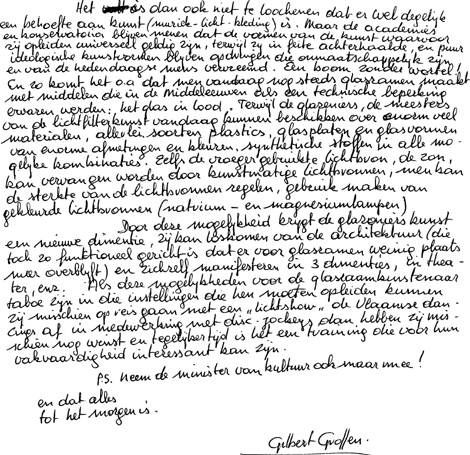 Het is dan ook niet te loochenen dat er wel degelijk
een behoefte aan kunst (muziek - licht - kleding) is. Maar de academies
en konservatoria blijven menen dat de vormen van de kunst waarvoor
zij opleiden universeel geldig zijn, terwijl zij in feite achterhaalde, en puur
ideologische kunstvormen blijven opdringen die onmaatschappelijk zijn
en van de hedendaagse mens vervreemd. Een boom zonder wortel!
En zo komt het o.a. dat men vandaag nog steeds glasramen maakt
met middelen die in de Middeleeuwen als een technische beperking
ervaren werden: het glas in lood. Terwijl de glazeniers, de meesters
van de lichtfilterkunst vandaag kunnen beschikken over enorm veel
materialen, allerlei soorten plastics, glasplaten en glasvormen
van enorme afmetingen en kleuren, synthetische stoffen in alle mo-
gelijke kombinaties. Zelfs de vroeger gebruikte lichtbron, de zon,
kan vervangen worden door kunstmatige lichtbronnen, men kan
de sterkte van de lichtbronnen regelen, gebruik maken van
gekleurde lichtbronnen (natrium - en magnesiumlampen)
Door deze mogelijkheid krijgt de glazeniers kunst
een nieuwe dimentie, zij kan loskomen van de architektuur (die
toch zo funktioneel gericht is dat er voor glasramen weinig plaats
meer overblijft) en zichzelf manifesteren in 3 dimenties, in thea-
ter, enz. Als deze mogelijkheden voor de glasraamkunstenaar
taboe zijn in die instellingen die hen moeten opleiden kunnen
zij misschien op reis gaan met een "lichtshow" de Vlaamse dan-
cings af in medewerking met disc-jockeys dan hebben zij mis-
schien nog winst en tegelijkertijd is het een training die voor hun
vakvaardigheid interessant kan zijn.
P.S. neem de minister van kultuur ook maar mee!
en dat alles
tot het morgen is.
Gilbert